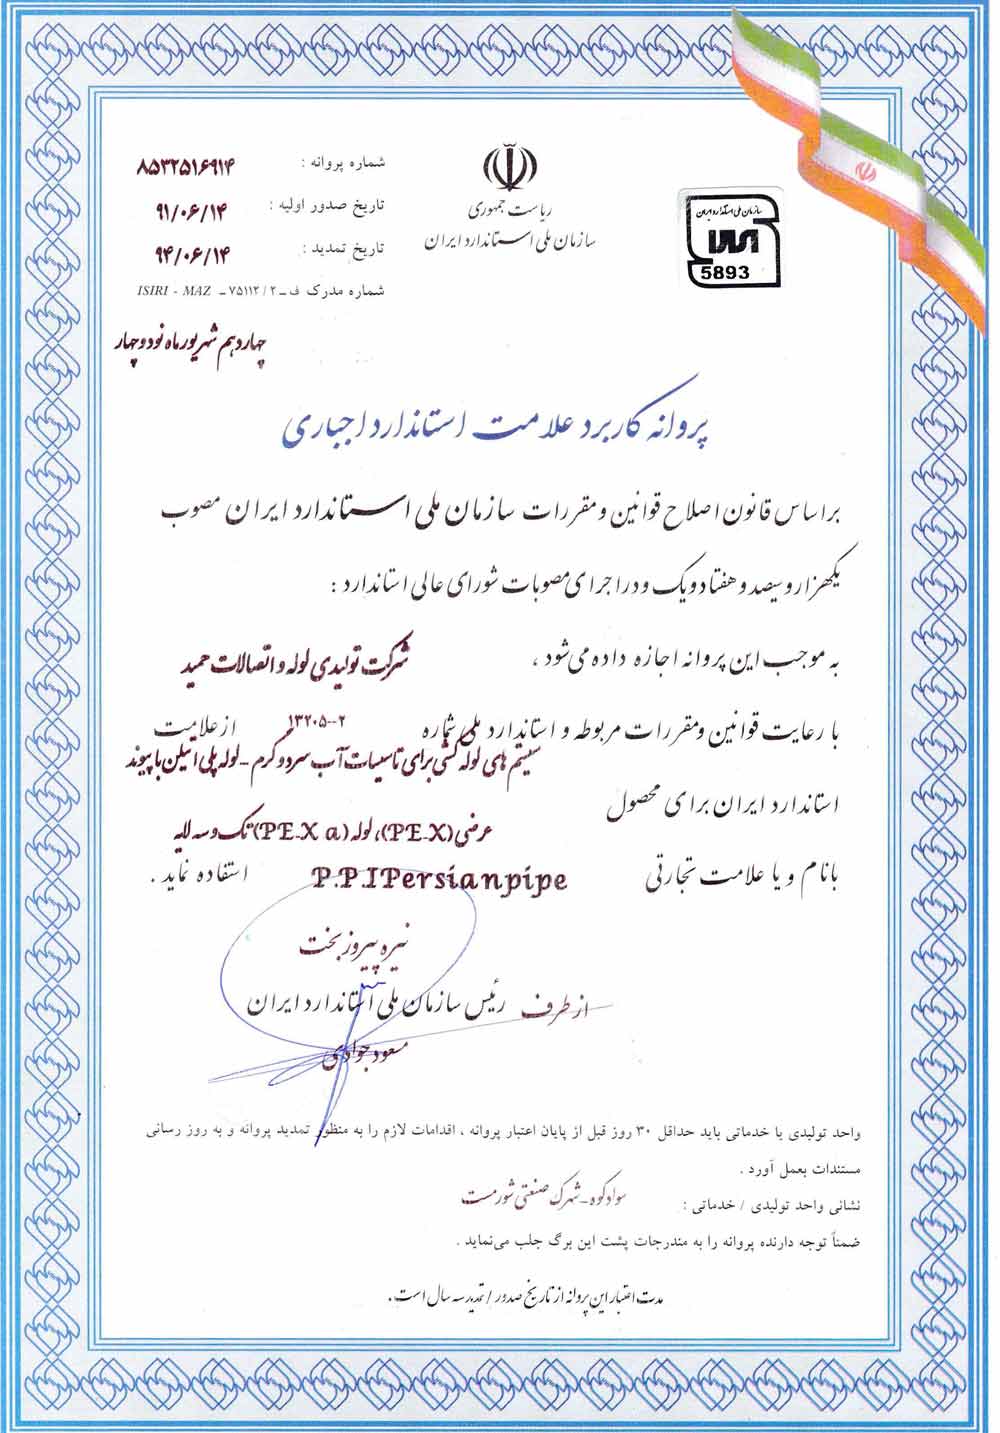 شماره پروانه : ۸۵۳۲۵۱۶۹۱۴
تاریخ صدور اولیه : ۹۱/۰۶/۱۴
تاریخ تمدید : ۹۴/۰۶/۱۴
شماره مدرک ف ـ ۷۵۱۱۲/۲ ـ ISIRI - MAZ
چهاردهم شهریور ماه نود و چهار
ریاست جمهوری
سازمان ملی استاندارد ایران
سازمان ملی استاندارد ایران
5893
پروانه کاربرد علامت استاندارد اجباری
براساس قانون اصلاح قوانین و مقررات سازمان ملی استاندارد ایران مصوب
یکهزار و سیصد و هفتاد و یک و در اجرای مصوبات شورای عالی استاندارد :
به موجب این پروانه اجازه داده می‌شود ، شرکت تولیدی لوله و اتصالات حمید
با رعایت قوانین و مقررات مربوطه و استاندارد ملی شماره ۲--۱۳۲۰۵ از علامت
سیستم های لوله کشی برای تاسیسات آب سرد و گرم - لوله پلی اتیلن با پیوند
استاندارد ایران برای محصول
عرضی (PE-X)، لوله (PE-X a) تک و سه لایه
بانام و یا علامت تجارتی P.P.IPersianpipe استفاده نماید .
نیره پیروزبخت
از طرف رئیس سازمان ملی استاندارد ایران
مسعود جوادی
واحد تولیدی یا خدماتی باید حداقل ۳۰ روز قبل از پایان اعتبار پروانه ، اقدامات لازم را به منظور تمدید پروانه و به روز رسانی
مستندات بعمل آورد .
نشانی واحد تولیدی / خدماتی : سوادکوه - شهرک صنعتی شورمست
ضمناً توجه دارنده پروانه را به مندرجات پشت این برگ جلب می‌نماید .
مدت اعتبار این پروانه از تاریخ صدور / تمدید سه سال است .